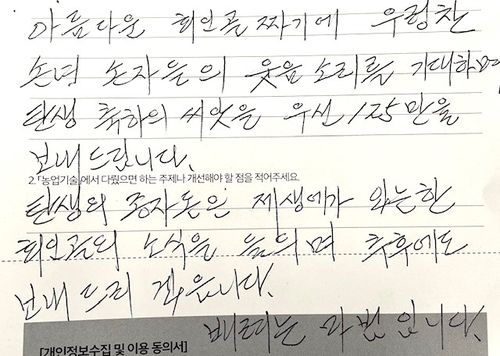 아름다운 회인골짜기에 우렁찬
손녀 손자들의 웃음소리를 기대하며
탄생 축하의 씨앗을 우선 125만을
보내드립니다.
2. 「농업기술」에서 다뤘으면 하는 주제나 개선해야 할 점을 적어주세요.
탄생의 종자돈은 제생에가 완는한
회인골의 소식을 들으며 추후에도
보내 드리 겠읍니다.
베려는 마법 입니다.
[개인정보수집 및 이용 동의서]